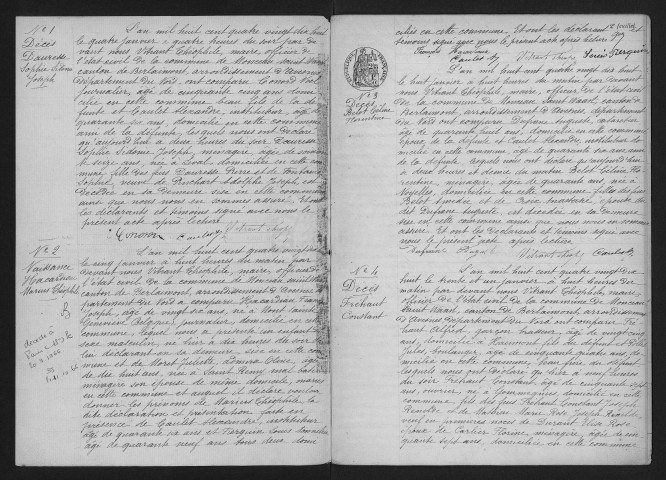 N° 1
Décès
Dauresse
Sophie
Joseph
L'an mil huit cent quatre vingt dix huit
le quatre janvier à quatre heures du soir par de
vant nous Vibrant Théophile, maire, officier de
l'état civil de la commune de Monceau Saint Vaast,
canton de Berlaimont, arrondissement d'Avesnes
département du Nord, ont comparu
journalier, âgé de cinquante cinq ans, domi
cilié en cette commune beau fils de la dé
funte et Caulet Alexandre, instituteur, âgé de
quarante six ans, domicilié en cette commune
ami de la défunte, lesquels nous ont déclaré
qu'aujourd'hui à deux heures du soir Dauresse
Sophie Joseph, ménagère, âgée de soixante
seize ans, née à Leval, domiciliée en cette com
mune, fille des feus Dauresse Pierre et de
Sophie, veuve de Adolphe Joseph, est
décédée en sa demeure sise en cette commune
ainsi que nous nous en sommes assuré. Et ont
les déclarants et témoins signé avec nous le
présent acte après lecture
Caulet Vibrant Théop
N° 2
Naissance
Hacardiau
Marius Théophile
décédé à
L'an mil huit cent quatre vingt dix huit
le cinq janvier à huit heures du matin par
devant nous Vibrant Théophile, maire, officier de
l'état civil de la commune de Monceau Saint Vaast
canton de Berlaimont, arrondissement d'Avesnes dé
partement du Nord a comparu Hacardiau
Joseph, âgé de vingt six ans, né à Mont Sainte
Geneviève (Belgique) journalier, domicilié en cette
commune, lequel nous a présenté un enfant du
sexe masculin, né hier à dix heures du soir de
lui déclarant en sa demeure, sise en cette com
mune et de Moret Juliette, Laura, âgée
de dix huit ans, née à Saint Remy mal bâti
ménagère son épouse de même domicile, mariés
en cette commune et auquel il déclare vouloir
donner les prénoms de Marius Théophile la
dite déclaration et présentation faite en
présence de Caulet Alexandre, instituteur
âgé de quarante six ans et Ferquin Louis
âgé de quarante neuf ans tous deux domi
ciliés en cette commune. Et ont les déclarant et
témoins signé avec nous le présent acte après lecture
Caulet Vibrant Théop Louis Ferquin
N° 3
Décès
Belot Céline
Florentine
L'an mil huit cent quatre vingt dix huit
le huit janvier à huit heures du matin par devant
nous Vibrant Théophile, maire, officier de l'état civil
de la commune de Monceau Saint Vaast, canton de
Berlaimont, arrondissement d'Avesnes, département
du Nord ont comparu Dufrane Auguste,
âgé de quarante huit ans, domicilié en cette commune
époux de la défunte et Caulet Alexandre, instituteur do
micilié en cette commune, âgé de quarante six ans ami
de la défunte, lesquels nous ont déclaré qu'aujourd'hui
à deux heures et demie du matin Belot Céline Flo
rentine, ménagère, âgée de quarante ans, née à
Noyelles, domiciliée en cette commune, filles des feus
Belot Amédée et de Croix épouse
de dit Dufrane Auguste, est décédée en sa demeure
sise en cette commune ainsi que nous nous en sommes
assuré. Et ont les déclarants et témoins signé avec
nous le présent acte après lecture
Vibrant Théop Caulet
N° 4
Décès
Fréhaut
Constant
L'an mil huit cent quatre vingt dix
huit le trente et un janvier à huit heures du
matin par devant nous Vibrant Théophile, maire
officier de l'état civil de la commune de Monceau
Saint Vaast, canton de Berlaimont, arrondissement
d'Avesnes département du Nord, ont comparu Fré
haut Alfred, garçon brasseur, âgé de vingt
ans, domicilié à Hautmont fils du défunt et
Jules, boulanger, âgé de cinquante quatre ans, do
micilié en cette commune, du défunt,
lesquels nous ont déclaré qu'hier à neuf heures
du soir Fréhaut Constant, âgé de cinquante sept
ans, ouvrier, né à Gommegnies, domicilié en cette
commune, fils des feus Fréhaut Constant Joseph
et de Marie Rose Joseph
veuf en premières noces de Durant Elisa Rose
époux de Carlier Florine, ménagère, âgée de cin
quante sept ans, domiciliée en cette commune